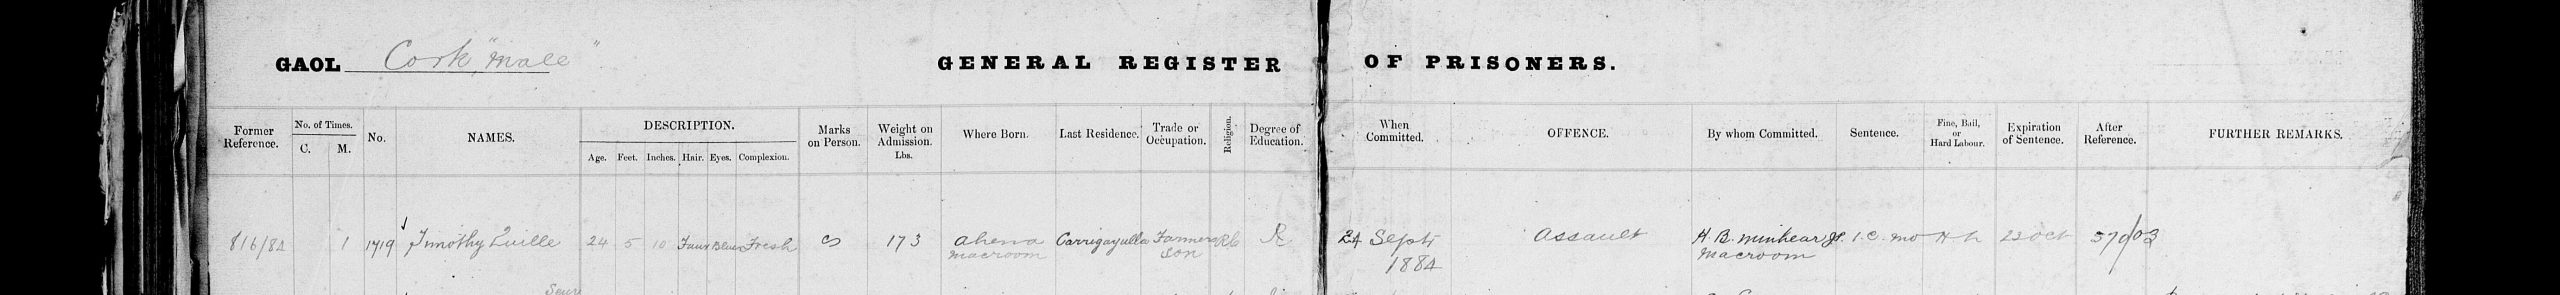 GAOL Cork "Male" GENERAL REGISTER OF PRISONERS.
Former Reference. No. of Times. C. M. No. NAMES. DESCRIPTION. Age. Feet. Inches. Hair. Eyes. Complexion. Marks on Person. Weight on Admission. Lbs. Where Born. Last Residence. Trade or Occupation. Religion. Degree of Education. When Committed. OFFENCE. By whom Committed. Sentence. Fine, Bail, or Hard Labour. Expiration of Sentence. After Reference. FURTHER REMARKS.
816/84 1 1719 Timothy Quille 24 5 10 Fair Blue Fresh 173 Ahena Carrigayulla Farmers RC R 24 Septr Assault H. B. Minhear Jr. 1. C. Mo H L 23 Oct
Macroom Son 1884 Macroom